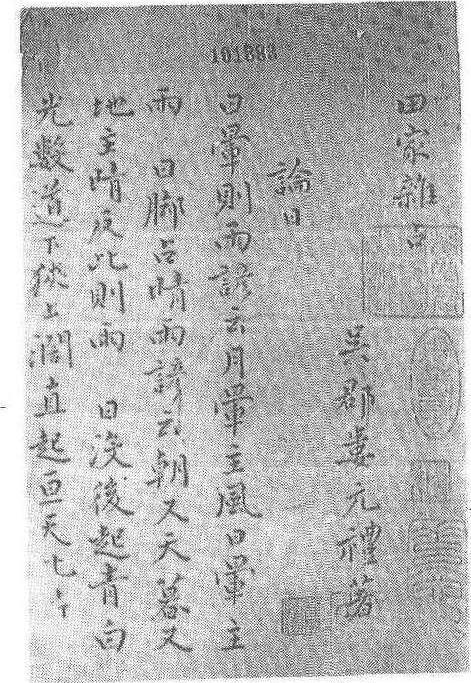 田家雜占
吳郡婁元禮著
論日
日暈則雨諺云月暈主風日暈主
雨 日脚占晴雨諺云朝又天暮又
地主晴反此則雨 日沒後起青白
光數道下狹上濶直起亘天